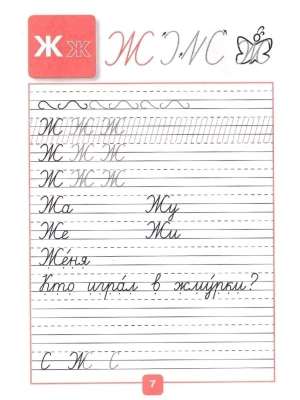 Ж ж
Ж "Э·ІС" Ж
Ж Ж Ж
Ж Ж Ж
Ж Ж Ж
Жа Жу
Же Жи
Же́ня
Кто игра́л в жму́рки?
С Ж С
7